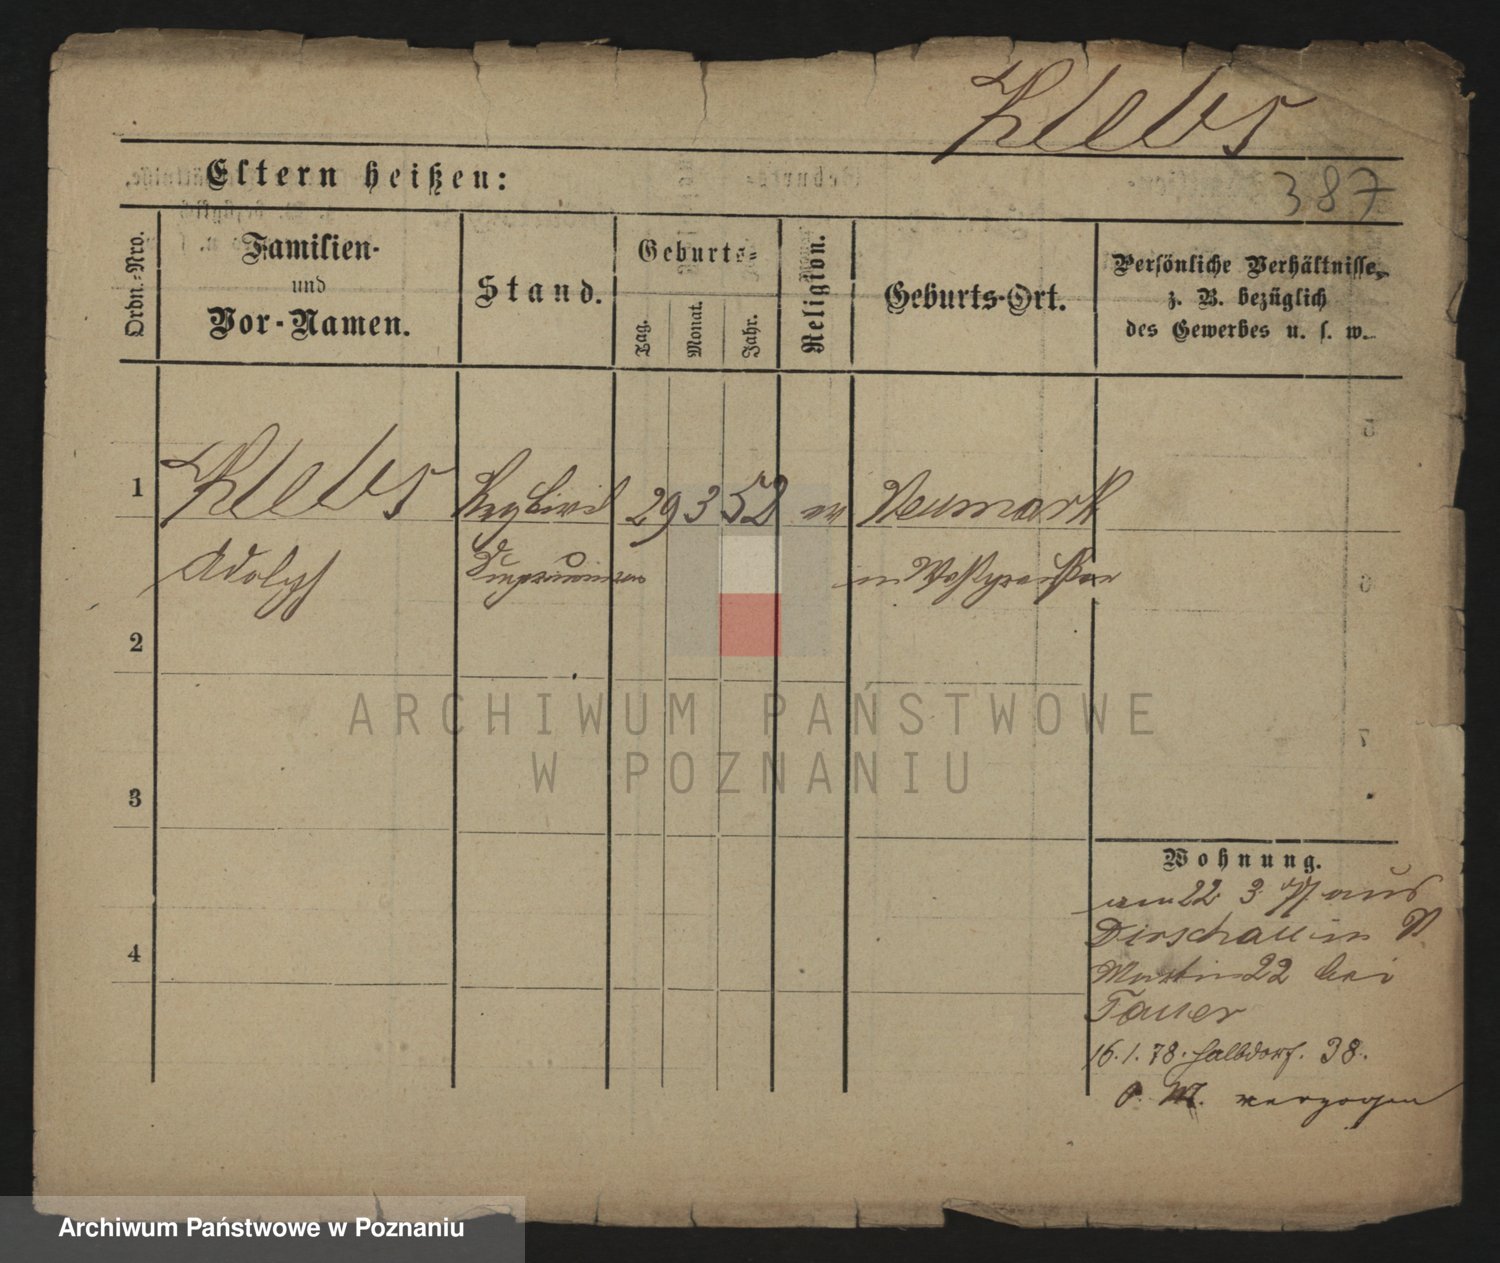 Klebs
387
Eltern heißen:
Ordn.-Nro.
Familien-
und
Vor-Namen.
Stand.
Geburts-
Tag.
Monat.
Jahr.
Religion.
Geburts-Ort.
Persönliche Verhältnisse,
z. B. bezüglich
des Gewerbes u. s. w.
1
Klebs
Adolph
29 3 52
ev
Neumark
in Westpreußen
2
3
4
Wohnung.
am 22. 3. 77 aus
Dirschau in
Martin 22 bei
Tauer
16. 1. 78. Halbdorf. 38.
o. M. verzogen
ARCHIWUM PAŃSTWOWE
W POZNANIU
Archiwum Państwowe w Poznaniu